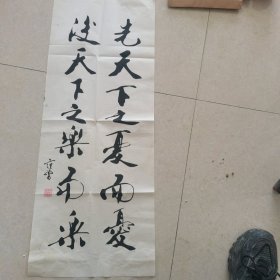 先天下之憂而憂
後天下之樂而樂